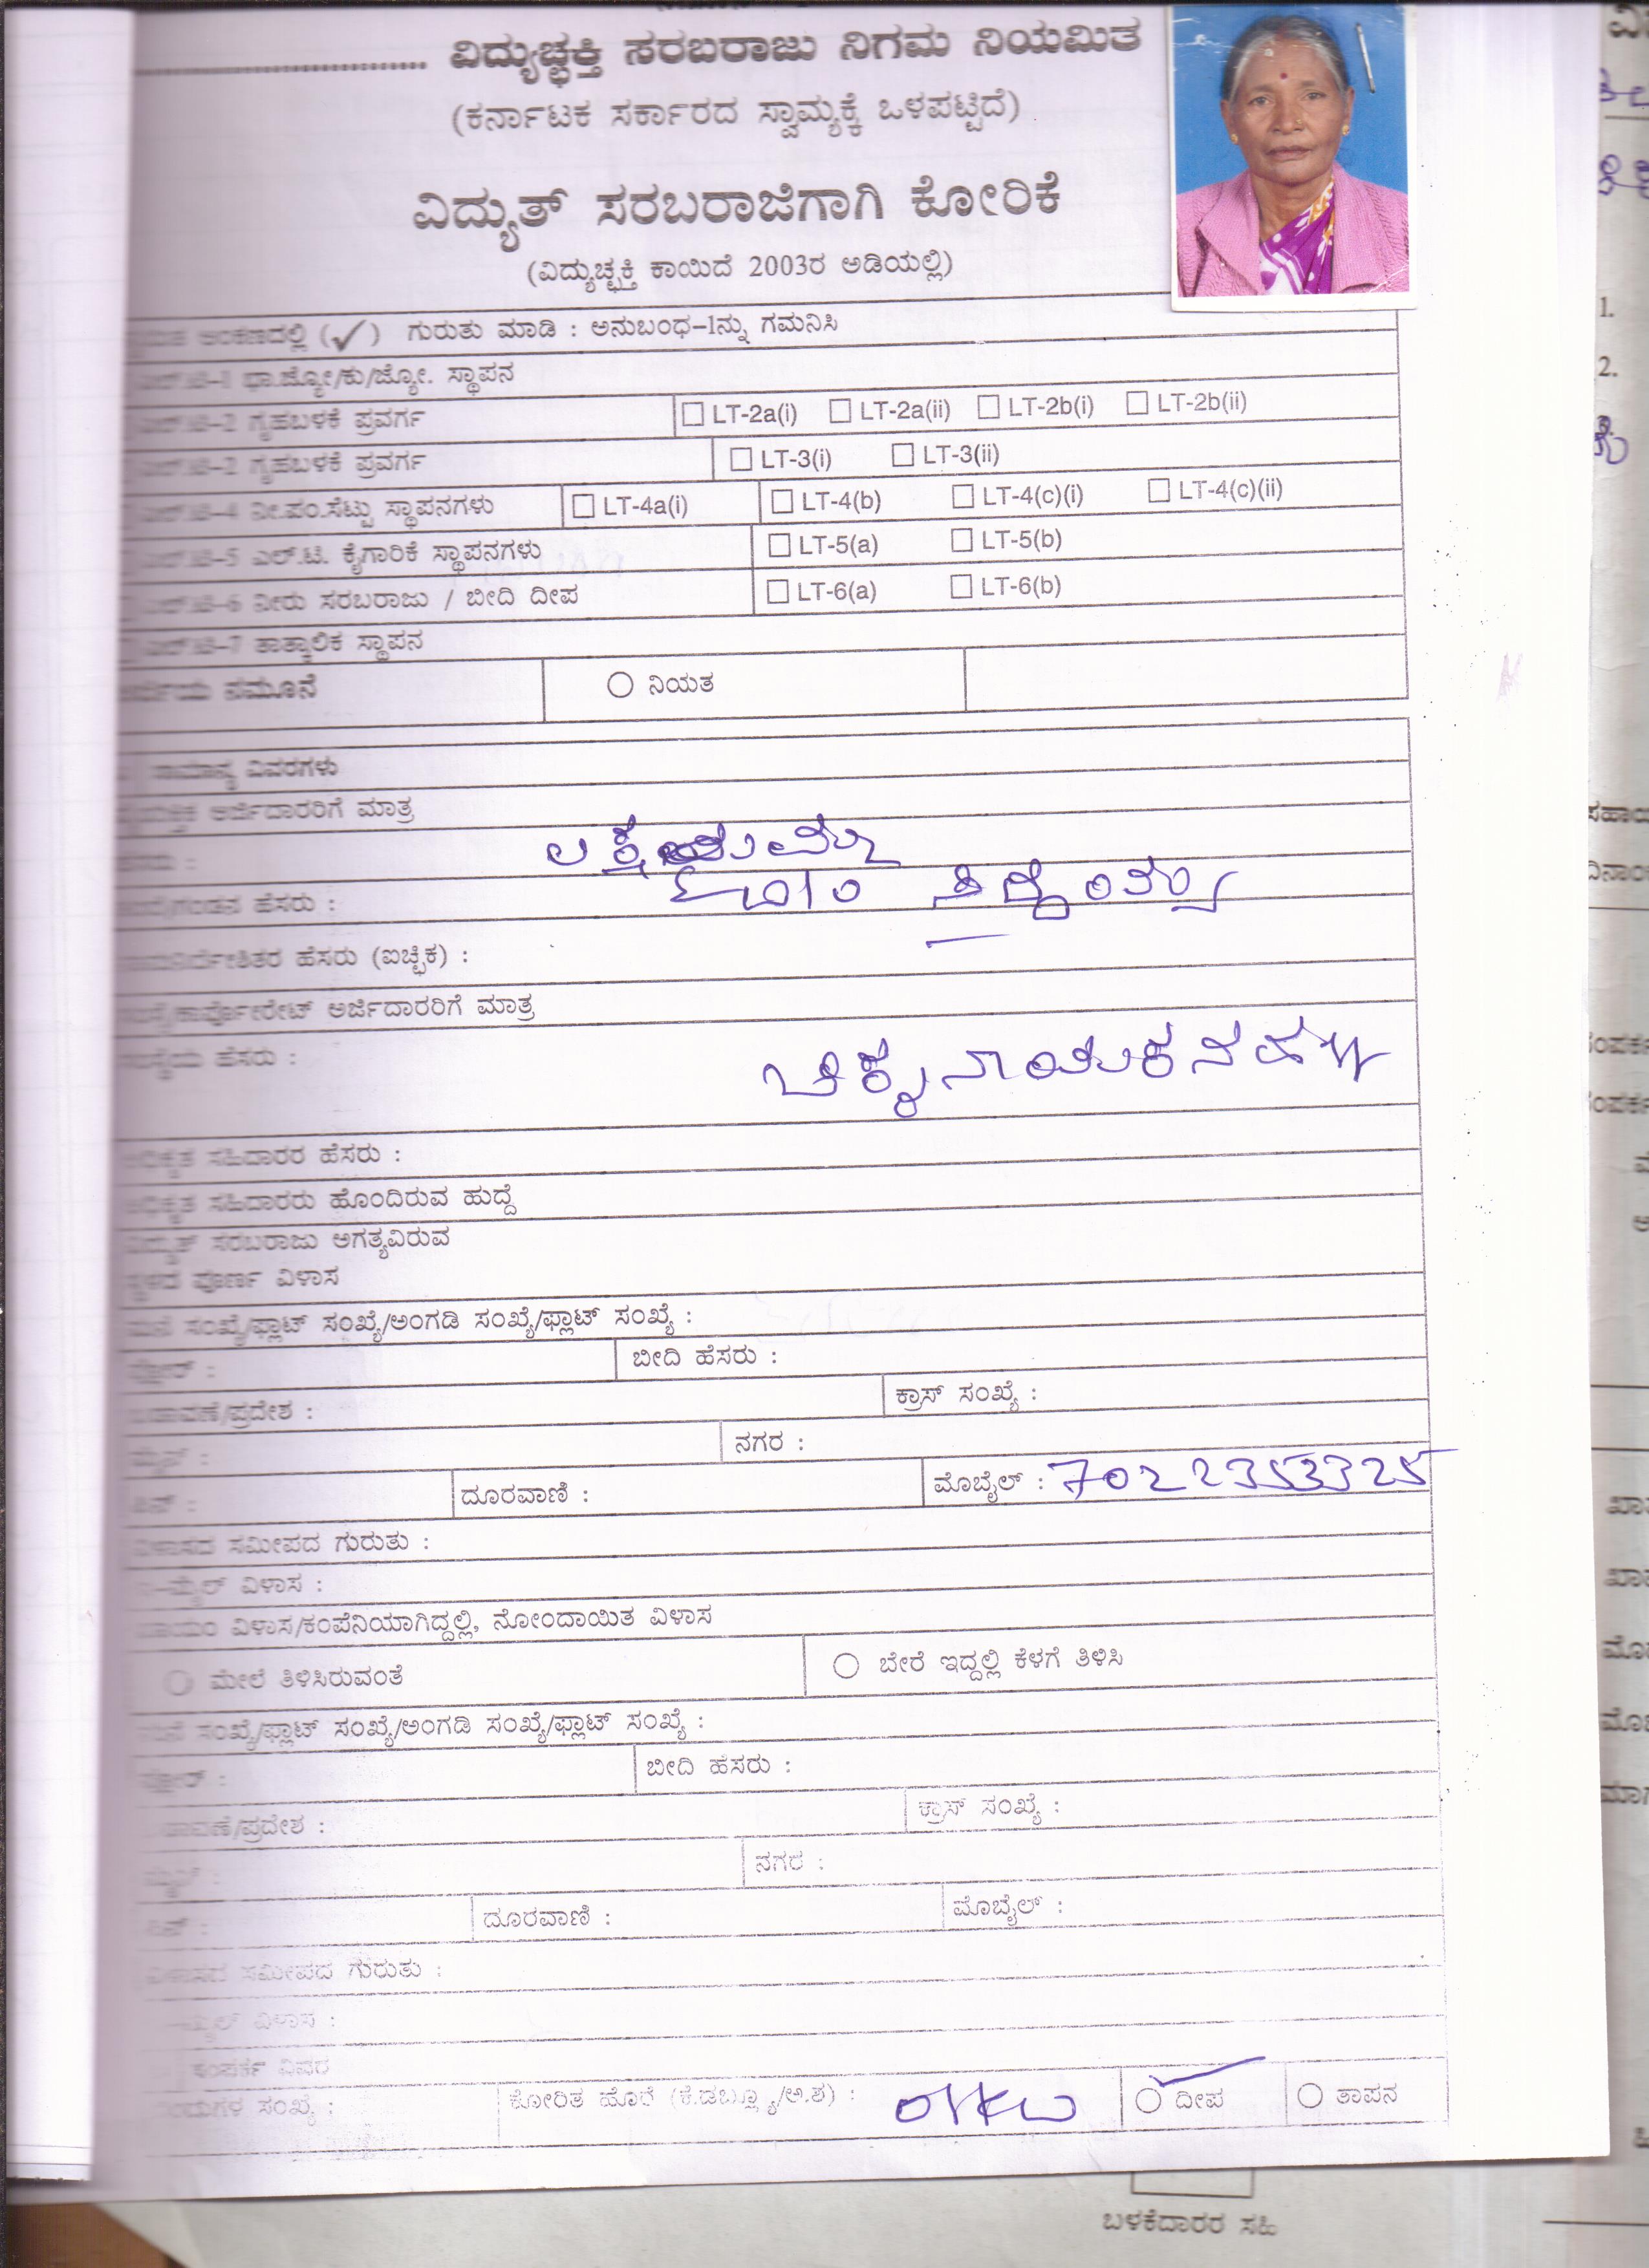 ವಿದ್ಯುಚ್ಛಕ್ತಿ ಸರಬರಾಜು ನಿಗಮ ನಿಯಮಿತ
(ಕರ್ನಾಟಕ ಸರ್ಕಾರದ ಸ್ವಾಮ್ಯಕ್ಕೆ ಒಳಪಟ್ಟಿದೆ)
ವಿದ್ಯುತ್ ಸರಬರಾಜಿಗಾಗಿ ಕೋರಿಕೆ
(ವಿದ್ಯುಚ್ಛಕ್ತಿ ಕಾಯಿದೆ 2003ರ ಅಡಿಯಲ್ಲಿ)
ಅಂಕಣದಲ್ಲಿ (✓) ಗುರುತು ಮಾಡಿ : ಅನುಬಂಧ-1ನ್ನು ಗಮನಿಸಿ
ಭಾ.ಜ್ಯೋ/ಕು/ಜ್ಯೋ. ಸ್ಥಾಪನ
ಗೃಹಬಳಕೆ ಪ್ರವರ್ಗ LT-2a(i) LT-2a(ii) LT-2b(i) LT-2b(ii)
ಗೃಹಬಳಕೆ ಪ್ರವರ್ಗ LT-3(i) LT-3(ii)
ನೀ.ಪಂ.ಸೆಟ್ಟು ಸ್ಥಾಪನಗಳು LT-4a(i) LT-4(b) LT-4(c)(i) LT-4(c)(ii)
ಎಲ್.ಟಿ. ಕೈಗಾರಿಕೆ ಸ್ಥಾಪನಗಳು LT-5(a) LT-5(b)
ನೀರು ಸರಬರಾಜು / ಬೀದಿ ದೀಪ LT-6(a) LT-6(b)
ತಾತ್ಕಾಲಿಕ ಸ್ಥಾಪನ
ನಮೂನೆ ನಿಯತ
ಸಾಮಾನ್ಯ ವಿವರಗಳು
ಅರ್ಜಿದಾರರಿಗೆ ಮಾತ್ರ
ಹೆಸರು :
ಹೆಸರು (ಐಚ್ಛಿಕ) :
ಅರ್ಜಿದಾರರಿಗೆ ಮಾತ್ರ
ಹೆಸರು : ಚಿಕ್ಕನಾಯಕನಹಳ್ಳಿ
ಅಧಿಕೃತ ಸಹಿದಾರರ ಹೆಸರು :
ಅಧಿಕೃತ ಸಹಿದಾರರು ಹೊಂದಿರುವ ಹುದ್ದೆ
ವಿದ್ಯುತ್ ಸರಬರಾಜು ಅಗತ್ಯವಿರುವ
ಸ್ಥಳದ ಪೂರ್ಣ ವಿಳಾಸ
ಮನೆ ಸಂಖ್ಯೆ/ಫ್ಲಾಟ್ ಸಂಖ್ಯೆ/ಅಂಗಡಿ ಸಂಖ್ಯೆ/ಫ್ಲಾಟ್ ಸಂಖ್ಯೆ :
ಬೀದಿ ಹೆಸರು :
ಬಡಾವಣೆ/ಪ್ರದೇಶ : ಕ್ರಾಸ್ ಸಂಖ್ಯೆ :
ನಗರ :
ದೂರವಾಣಿ : ಮೊಬೈಲ್ : 7022353325
ವಿಳಾಸದ ಸಮೀಪದ ಗುರುತು :
ಇ-ಮೈಲ್ ವಿಳಾಸ :
ವಿಳಾಸ/ಕಂಪೆನಿಯಾಗಿದ್ದಲ್ಲಿ, ನೋಂದಾಯಿತ ವಿಳಾಸ
ಮೇಲೆ ತಿಳಿಸಿರುವಂತೆ ಬೇರೆ ಇದ್ದಲ್ಲಿ ಕೆಳಗೆ ತಿಳಿಸಿ
ಮನೆ ಸಂಖ್ಯೆ/ಫ್ಲಾಟ್ ಸಂಖ್ಯೆ/ಅಂಗಡಿ ಸಂಖ್ಯೆ/ಫ್ಲಾಟ್ ಸಂಖ್ಯೆ :
ಬೀದಿ ಹೆಸರು :
ಬಡಾವಣೆ/ಪ್ರದೇಶ : ಕ್ರಾಸ್ ಸಂಖ್ಯೆ :
ನಗರ :
ದೂರವಾಣಿ : ಮೊಬೈಲ್ :
ವಿಳಾಸದ ಸಮೀಪದ ಗುರುತು :
ವಿಳಾಸ :
ಸಂಪರ್ಕ ವಿವರ
ಸಂಖ್ಯೆ : ಕೋರಿತ ಹೊರೆ (ಕೆ.ಡಬ್ಲ್ಯೂ/ಅ.ಶ) : ದೀಪ ತಾಪನ
ಬಳಕೆದಾರರ ಸಹಿ